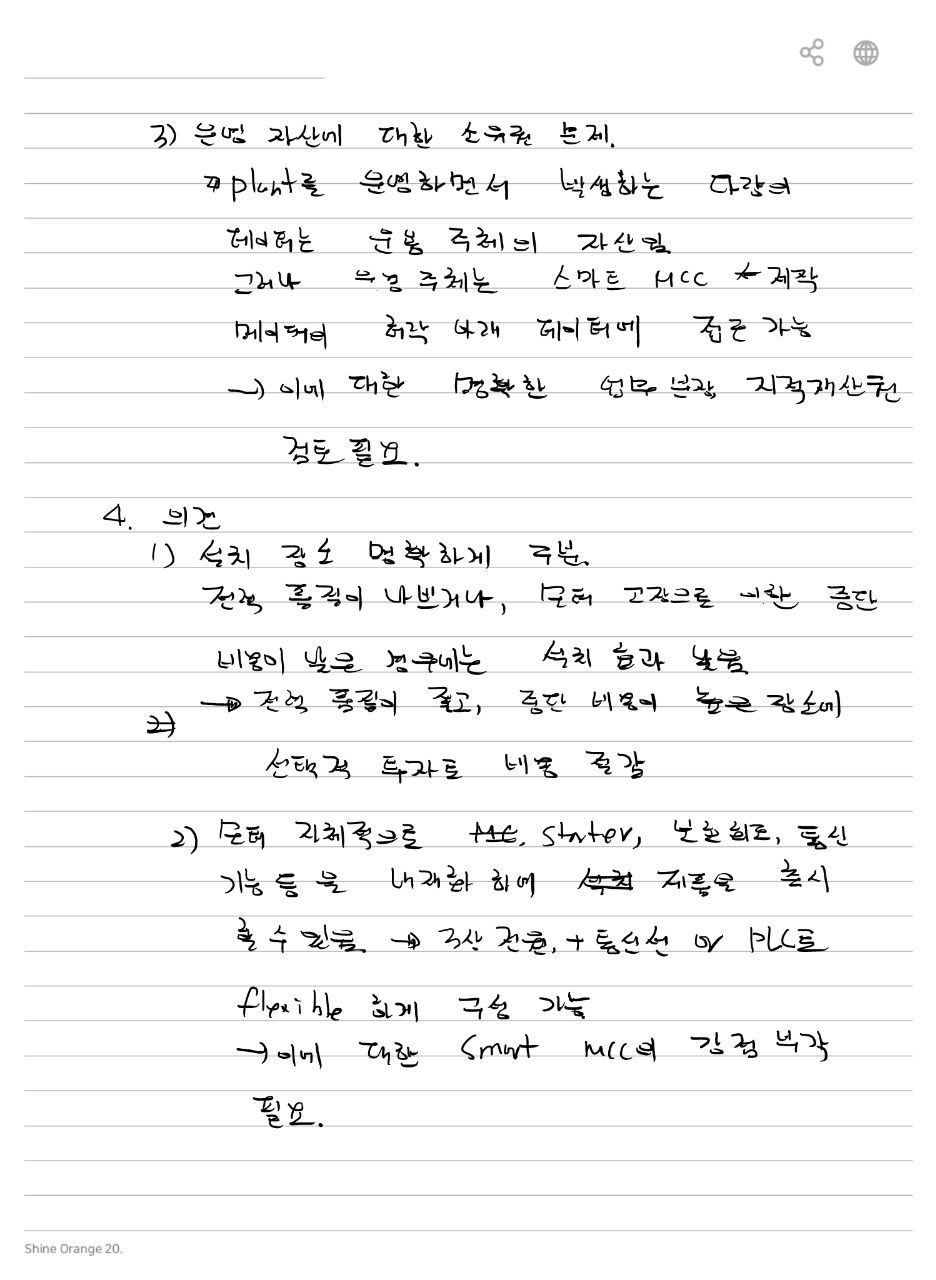 3) 운영 자산에 대한 소유권 문제.
plant를 운영하면서 발생하는 다량의
데이터는 운용 주체의 자산임.
그러나 운영 주체는 스마트 MCC 제작
메이커의 허락 아래 데이터에 접근 가능
→ 이에 대한 명확한 업무 분장, 지적재산권
검토 필요.
4. 의견
1) 설치 장소 명확하게 구분.
전력 품질이 나쁘거나, 모터 고장으로 인한 중단
비용이 낮은 경우에는 설치 효과 낮음
→ 전력 품질이 좋고, 중단 비용이 높은 장소에
선택적 투자로 비용 절감
2) 모터 자체적으로 starter, 보호회로, 통신
기능 등을 내재화 하여 제품을 출시
할 수 있음. → 3상 전원, + 통신선 or PLC로
flexible 하게 구성 가능
→ 이에 대한 Smart MCC의 강점 부각
필요.
Shine Orange 20.